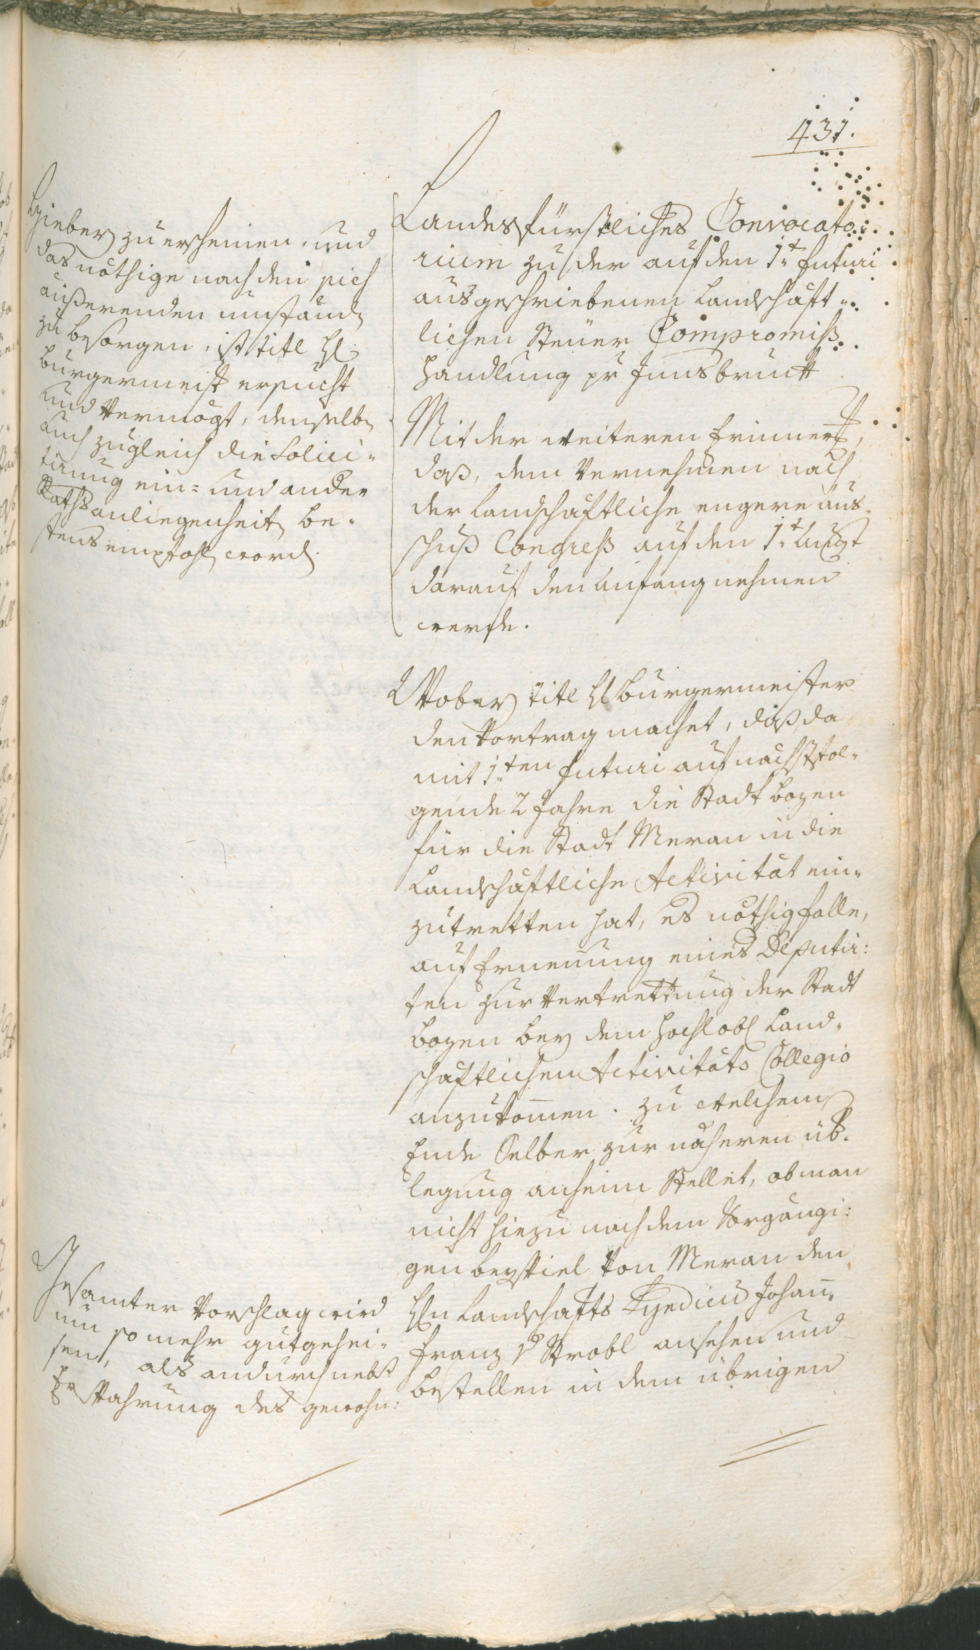 431.
Hieber zu erscheinen, und
das nöthige nach den sich
äußerenden umständ
zu besorgen, ist titl H
burgermeist ersucht
und Vermögt, demselb
auch zugleich die Solici-
tirung ein- und ander
Rathsanliegenheit be-
stens empfohl word.
Landesfürstliches Convocato-
rium zu der auf den 1t futuri
ausgeschriebenen Landschäft-
lichen Steuer Compromiß
Handlung pr Innsbruck
Mit der weiteren Erinner,
daß, dem Vernehmen nach
der Landschäftliche engere aus-
schuß Congreß auf den 1t
darauf den Anfang nehmen
werde.
Wober titl H burgermeister
den Vortrag machet, daß da
mit 1ten futuri auf nächstfol-
gende 2 Jahre die Stadt bozen
für die Stadt Meran in die
Landschäftliche Activität ein-
zutretten hat, es nöthig falle,
auf Ernennung eines Deputir-
ten zur Vertrettung der Stadt
bozen bey dem hochlobl Land-
schäftlichen Activitäts Collegio
anzukommen. zu welchem
Ende Selber zur näheren üb-
legung anheim Stellet, ob man
nicht hiezu nach dem Vorgängi-
gen beyspiel von Meran den
Hn Landschafts Syndicus Johann
Franz v Strobl ansehen und
bestellen in dem übrigen
Gesamter Vorschlag wird
um so mehr gutgehei-
sen, als andurch nebst
Er Wahrung des gewohn-